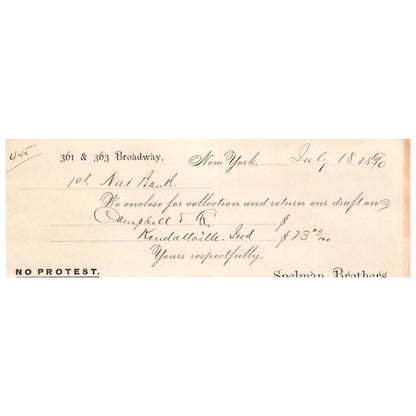 445
361 & 363 Broadway, New York, July 18 1890
1st. Nat Bank.
We enclose for collection and return our draft on
Campbell & Co $
Kendallville. Ind $73 00/100
Yours respectfully,
NO PROTEST. Spelman Brothers